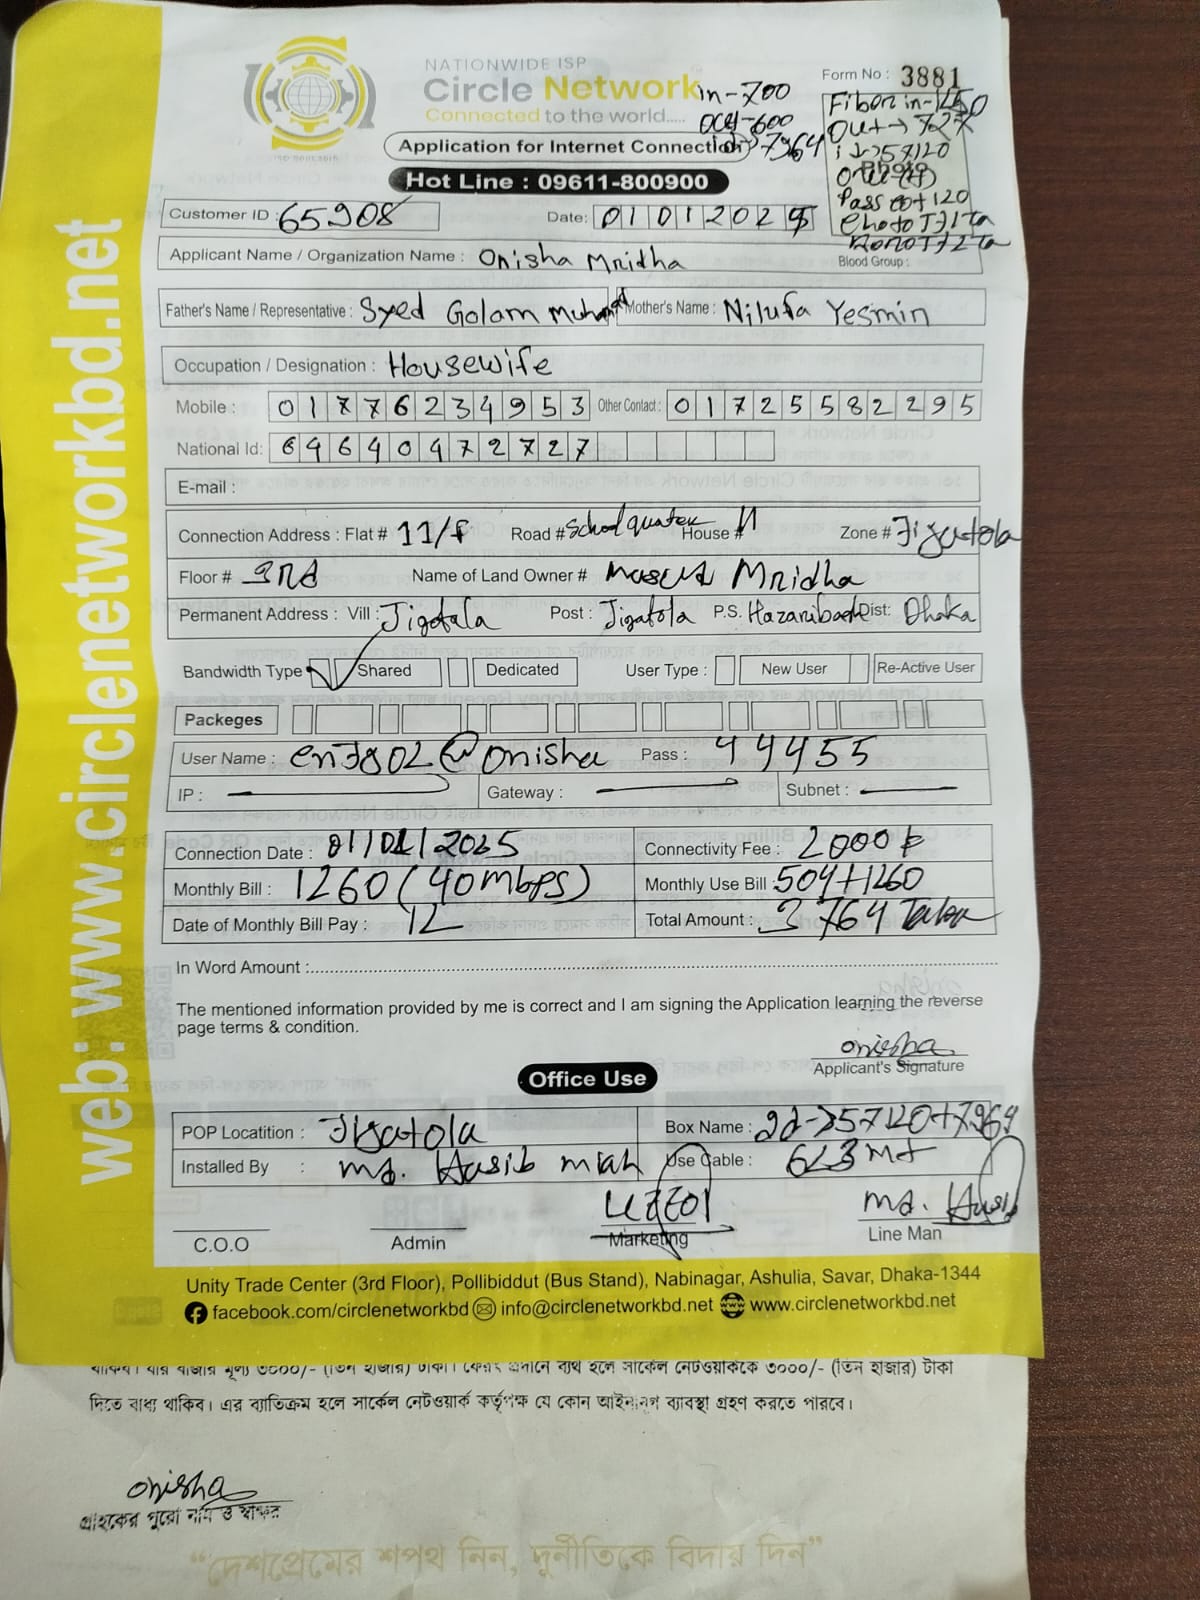 NATIONWIDE ISP
Circle Network
Connected to the world.....
in-700
out-600
7964
Form No : 3881
Fiber in-1250
Out → 727
57120
Photo
Pass 120
Application for Internet Connection
Hot Line : 09611-800900
Customer ID : 65908
Date: 01012025
Applicant Name / Organization Name : Onisha Mridha
Blood Group :
Father's Name / Representative : Syed Golam Muhamad Mother's Name : Nilufa Yesmin
Occupation / Designation : Housewife
Mobile : 01776234953 Other Contact : 01725582295
National Id: 64640472727
E-mail :
Connection Address : Flat # 11/f Road # School quater House # 11 Zone # Jigatola
Floor # 3Rd Name of Land Owner # Masud Mridha
Permanent Address : Vill : Jigatala Post : Jigatola P.S. Hazaribagh Dist: Dhaka
Bandwidth Type Shared Dedicated User Type : New User Re-Active User
Packeges
User Name : cnJ802@onisha Pass : 44455
IP : Gateway : Subnet :
Connection Date : 01/01/2025 Connectivity Fee : 2000৳
Monthly Bill : 1260 (40mbps) Monthly Use Bill : 504+1260
Date of Monthly Bill Pay : 12 Total Amount : 3764 Taka
In Word Amount :
The mentioned information provided by me is correct and I am signing the Application learning the reverse
page terms & condition.
onisha
Applicant's Signature
Office Use
POP Locatition : Jigatola Box Name : 22->57120+7964
Installed By : Md. Hasib miah Use Cable : 623 Mt
Md. Hasib
C.O.O Admin Marketing Line Man
Unity Trade Center (3rd Floor), Pollibiddut (Bus Stand), Nabinagar, Ashulia, Savar, Dhaka-1344
facebook.com/circlenetworkbd info@circlenetworkbd.net www.circlenetworkbd.net
web: www.circlenetworkbd.net
থাকিব। যার বাজার মূল্য ৩০০০/- (তিন হাজার) টাকা। ফেরৎ প্রদানে ব্যর্থ হলে সার্কেল নেটওয়ার্ককে ৩০০০/- (তিন হাজার) টাকা
দিতে বাধ্য থাকিব। এর ব্যাতিক্রম হলে সার্কেল নেটওয়ার্ক কর্তৃপক্ষ যে কোন আইনানুগ ব্যাবস্থা গ্রহণ করতে পারবে।
onisha
গ্রাহকের পুরো নাম ও স্বাক্ষর
“দেশপ্রেমের শপথ নিন, দুর্নীতিকে বিদায় দিন”